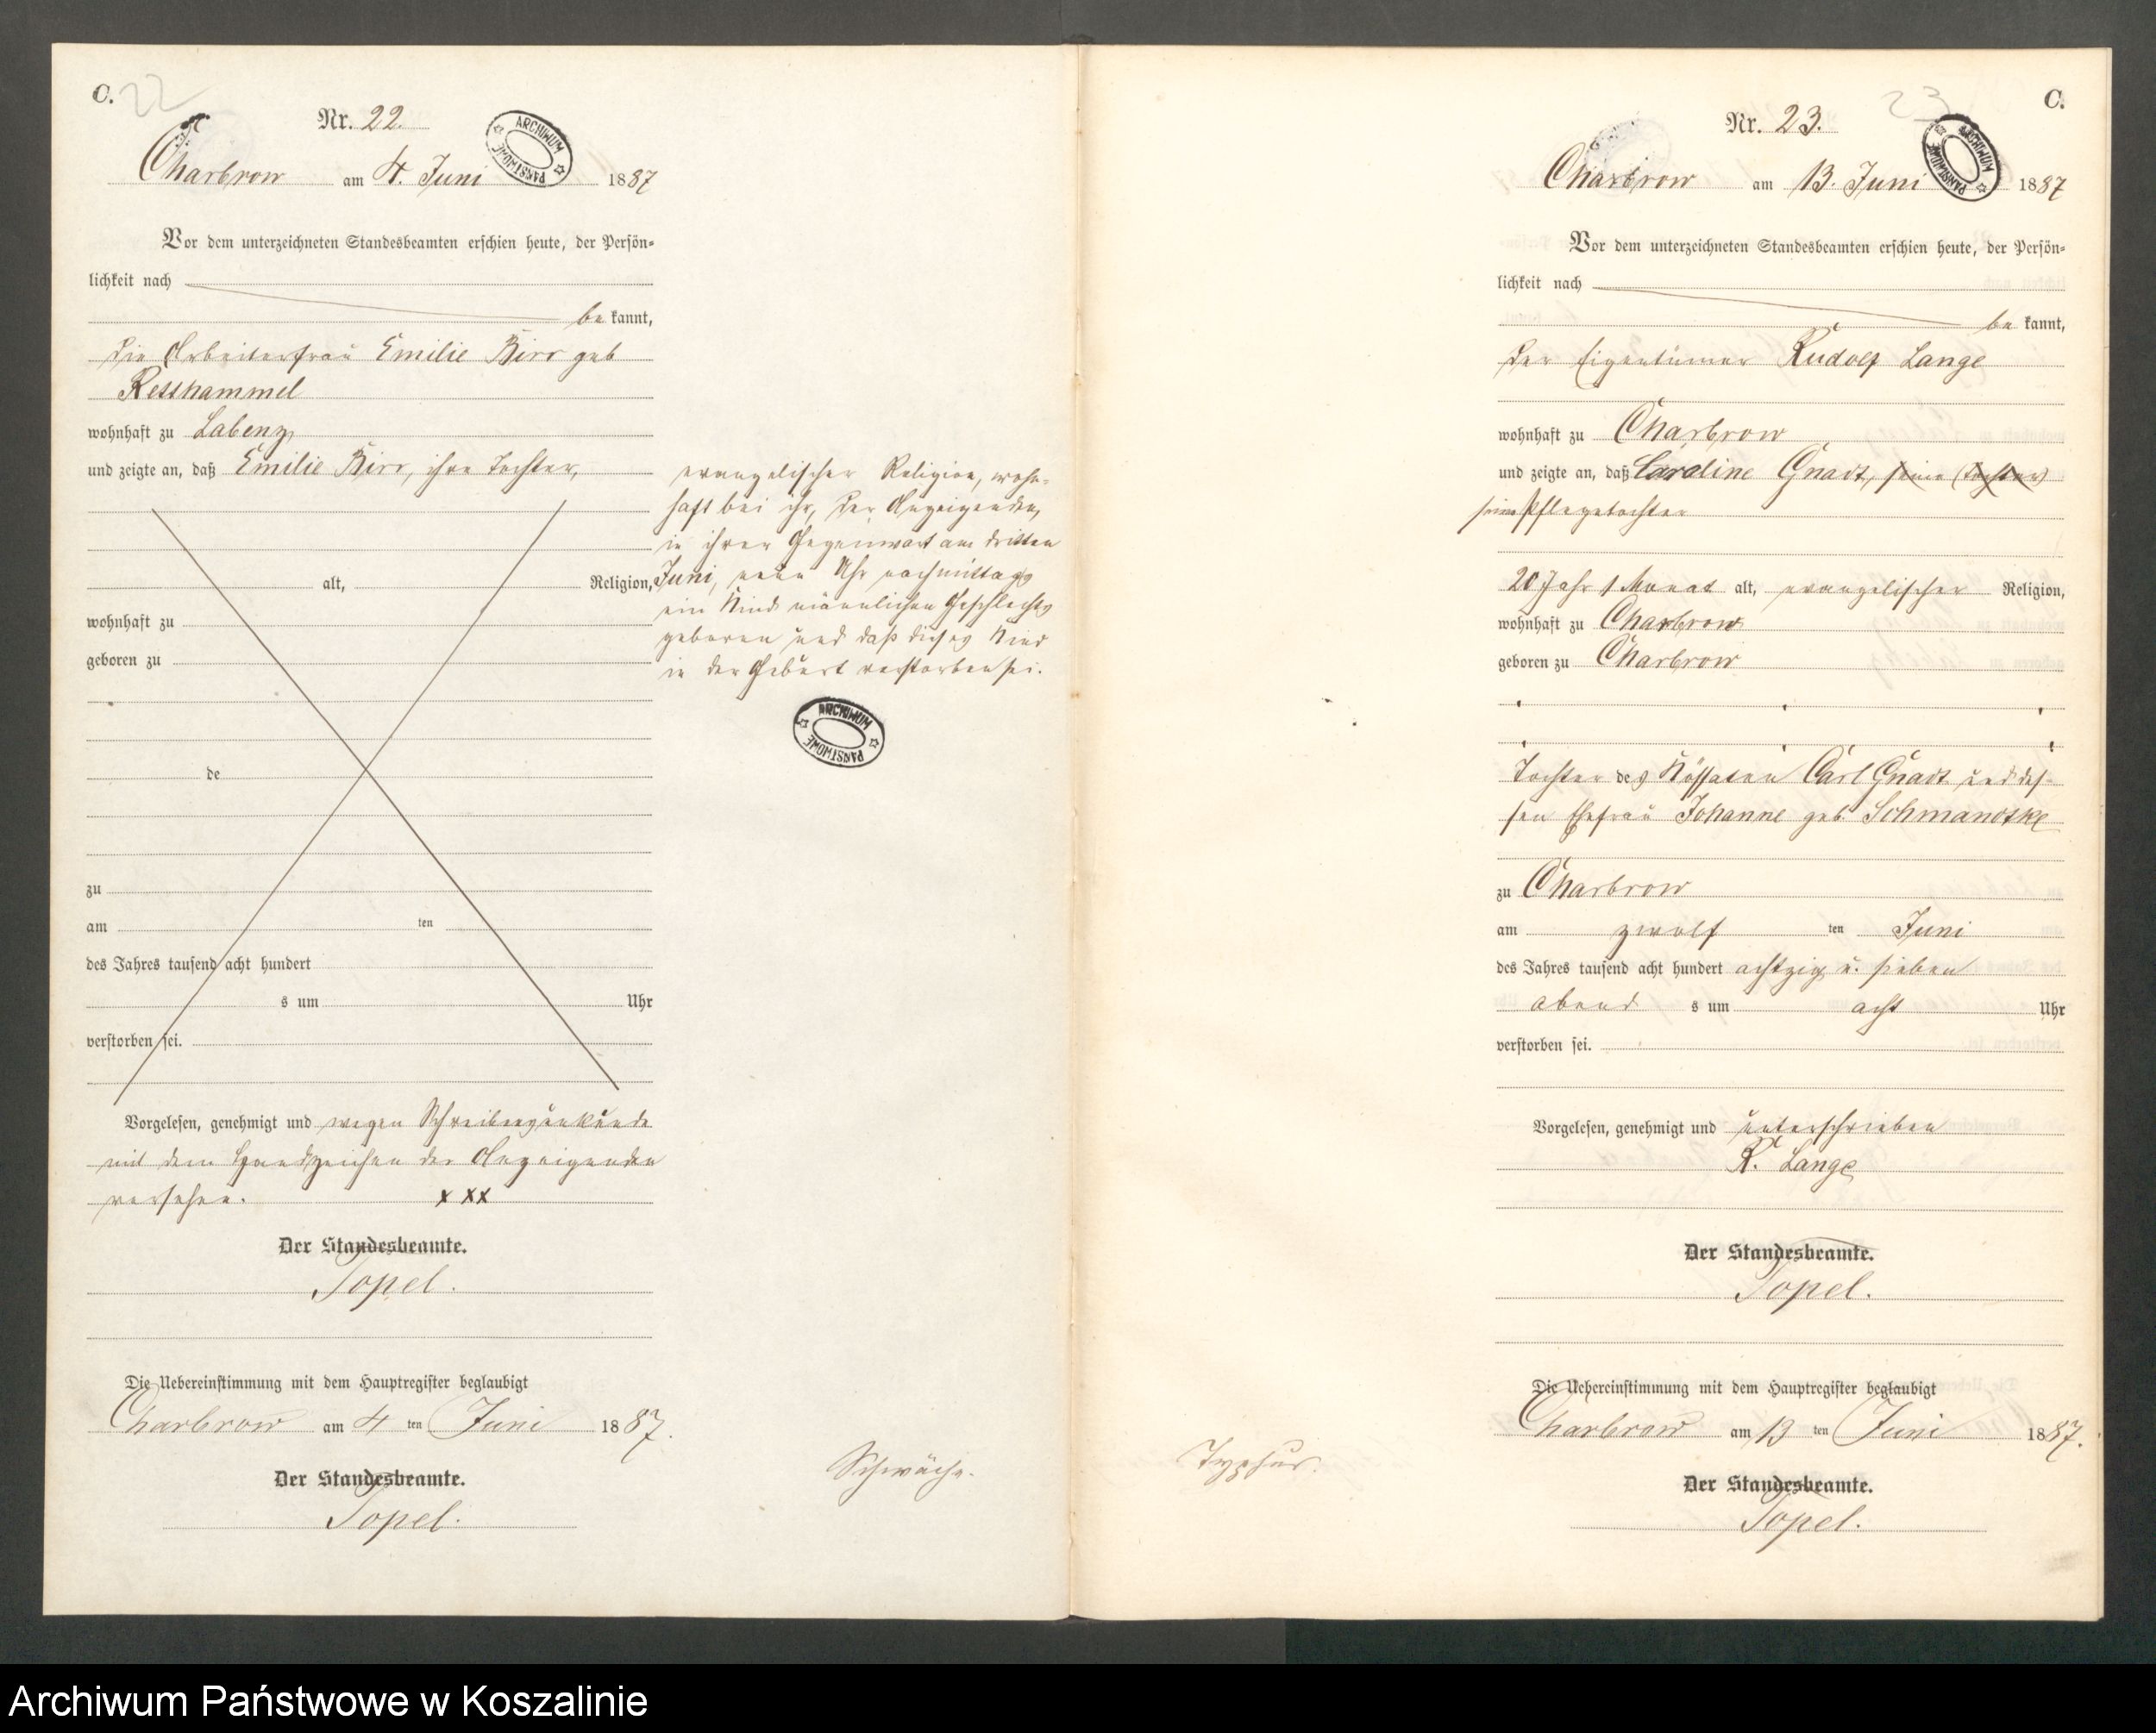 C. 22
Nr. 22.
ARCHIWUM PAŃSTWOWE
Charbrow am 4. Juni 1887
Vor dem unterzeichneten Standesbeamten erschien heute, der Persön-
lichkeit nach
be kannt,
die Arbeiterfrau Emilie Birr geb
Resshammel
wohnhaft zu Labenz
und zeigte an, daß Emilie Birr, ihre Tochter,
alt, Religion,
wohnhaft zu
geboren zu
de
zu
am ten
des Jahres tausend acht hundert
s um Uhr
verstorben sei.
evangelischer Religion, wohn-
haft bei ihr, der Anzeigenden,
in ihrer Gegenwart am dritten
Juni, neun Uhr nachmittags
ein Kind männlichen Geschlechts
geboren und daß dieses Kind
in der Geburt verstorben sei.
ARCHIWUM PAŃSTWOWE
Vorgelesen, genehmigt und wegen Schreibensunkunde
mit dem Handzeichen der Anzeigenden
versehen. xxx
Der Standesbeamte.
Topel.
Die Uebereinstimmung mit dem Hauptregister beglaubigt
Charbrow am 4 ten Juni 1887.
Der Standesbeamte.
Topel.
Schwäche.
23 C.
Nr. 23.
ARCHIWUM PAŃSTWOWE
Charbrow am 13. Juni 1887
Vor dem unterzeichneten Standesbeamten erschien heute, der Persön-
lichkeit nach
be kannt,
der Eigentümer Rudolf Lange
wohnhaft zu Charbrow
und zeigte an, daß Caroline Gnadt, seine Tochter
seine Pflegetochter
20 Jahr 1 Monat alt, evangelischer Religion,
wohnhaft zu Charbrow
geboren zu Charbrow
Tochter des Kossäten Carl Gnadt und des-
sen Ehefrau Johanne geb. Schmandtke
zu Charbrow
am zwölf ten Juni
des Jahres tausend acht hundert achtzig u. sieben
abend s um acht Uhr
verstorben sei.
Vorgelesen, genehmigt und unterschrieben
R. Lange
Der Standesbeamte.
Topel.
Die Uebereinstimmung mit dem Hauptregister beglaubigt
Charbrow am 13 ten Juni 1887.
Der Standesbeamte.
Topel.
Typhus.
Archiwum Państwowe w Koszalinie